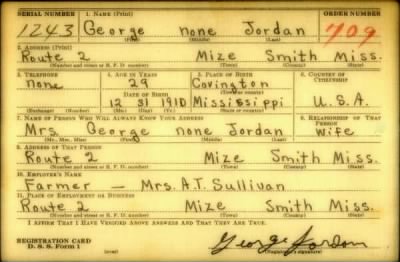 SERIAL NUMBER 1. NAME (Print) ORDER NUMBER
1243 George none Jordan 709
(First) (Middle) (Last)
2. ADDRESS (Print)
Route 2 Mize Smith Miss.
(Number and street or R. F. D. number) (Town) (County) (State)
3. TELEPHONE 4. AGE IN YEARS 5. PLACE OF BIRTH 6. COUNTRY OF CITIZENSHIP
none 29 Covington
DATE OF BIRTH (Town or county)
12 31 1910 Mississippi U.S.A.
(Exchange) (Number) (Mo.) (Day) (Yr.) (State or country)
7. NAME OF PERSON WHO WILL ALWAYS KNOW YOUR ADDRESS 8. RELATIONSHIP OF THAT PERSON
Mrs. George none Jordan Wife
(Mr., Mrs., Miss) (First) (Middle) (Last)
9. ADDRESS OF THAT PERSON
Route 2 Mize Smith Miss.
(Number and street or R. F. D. number) (Town) (County) (State)
10. EMPLOYER'S NAME
Farmer — Mrs. A.T. Sullivan
11. PLACE OF EMPLOYMENT OR BUSINESS
Route 2 Mize Smith Miss.
(Number and street or R. F. D. number) (Town) (County) (State)
I AFFIRM THAT I HAVE VERIFIED ABOVE ANSWERS AND THAT THEY ARE TRUE.
REGISTRATION CARD
D. S. S. Form 1 George Jordan
(Registrant's signature)